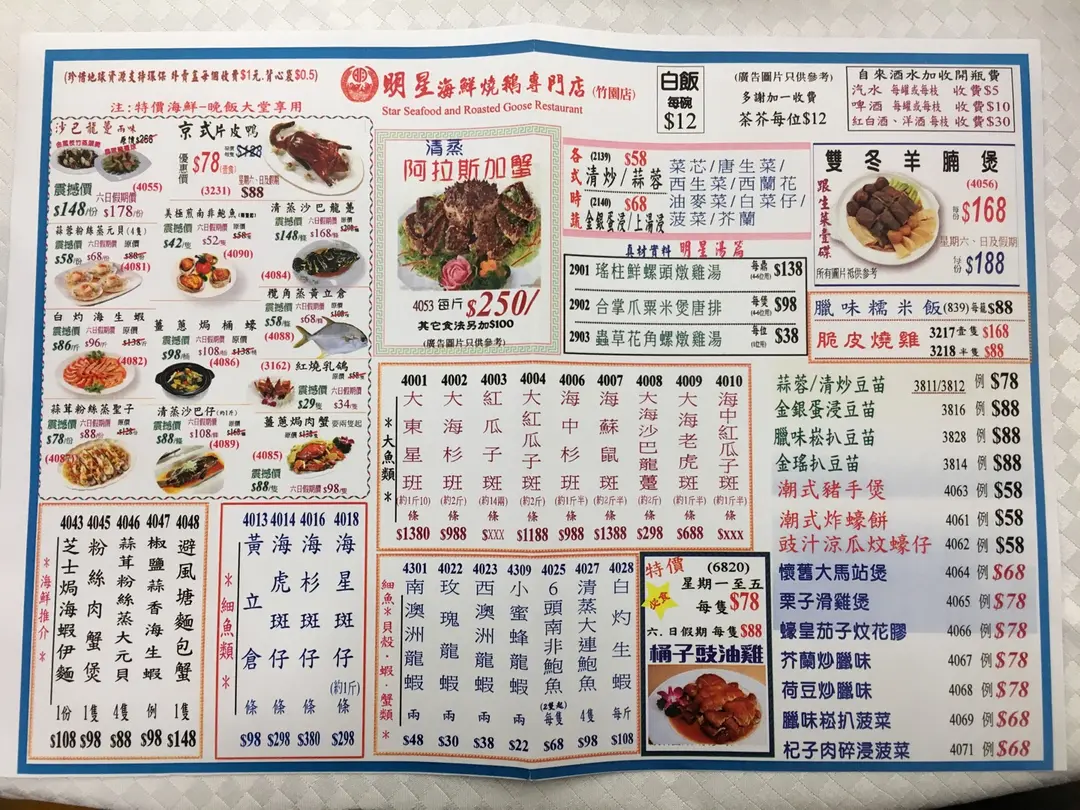 (珍惜地球資源支持環保 外賣盒每個收費$1元.背心袋$0.5)
注:特價海鮮-晚飯大堂享用
明星海鮮燒鵝專門店(竹園店)
Star Seafood and Roasted Goose Restaurant
白飯
每碗
$12
(廣告圖片只供參考)
多謝加一收費
茶芥每位$12
自來酒水加收開瓶費
汽水 每罐或每枝 收費$5
啤酒 每罐或每枝 收費$10
紅白酒、洋酒 每枝 收費$30
沙巴龍躉 兩味
原價$266
震撼價 六日假期價 (4055)
$148/份 $178/份
京式片皮鴨
優惠價 $78
(3231) 星期六、日及假期 $88
蒜蓉粉絲蒸元貝(4隻)
震撼價 六日假期價 原價
$58/份 $68/份 $88/份
(4081)
美極煎南非鮑魚
震撼價 六日假期價 原價
$42/隻 $52/隻
(4090)
清蒸沙巴龍躉
震撼價 六日假期價 原價
$148/條 $168/條
(4084)
白灼海生蝦
震撼價 六日假期價 原價
$86/斤 $96/斤 $138/斤
(4082)
薑蔥焗桶蠔
震撼價 六日假期價 原價
$98/例 $108/例 $138/例
(4086)
欖角蒸黃立倉
震撼價 六日假期價 原價
$58/條 $68/條 $108/條
(4088)
(3162) 紅燒乳鴿
震撼價 六日假期價
$29/隻 $34/隻
蒜茸粉絲蒸聖子
震撼價 六日假期價 原價
$78/份 $88/份 $128/份
(4087)
清蒸沙巴仔(約1斤)
震撼價 六日假期價 原價
$88/條 $108/條 $168/條
(4089)
薑蔥焗肉蟹 要兩隻起
震撼價 原價$138/隻
(4085)
$88/隻 六日假期價 $98/隻
清蒸
阿拉斯加蟹
4053 每斤 $250/
其它食法另加$100
(廣告圖片只供參考)
各式時蔬
(2139) $58
清炒/蒜蓉
(2140) $68
金銀蛋浸/上湯浸
菜芯/唐生菜/
西生菜/西蘭花
油麥菜/白菜仔/
菠菜/芥蘭
真材實料 明星湯篇
2901 瑤柱鮮螺頭燉雞湯 每鼎(4-6位用) $138
2902 合掌瓜粟米煲唐排 每煲(4-6位用) $98
2903 蟲草花角螺燉雞湯 每位(1位用) $38
雙冬羊腩煲
跟生菜壹碟
(4056)
每份 $168
星期六、日及假期
每份 $188
所有圖片祗供參考
臘味糯米飯(839)每籠$88
脆皮燒雞 3217壹隻 $168
3218半隻 $88
*大魚類*
4001 大東星班 (約1斤10) 條 $1380
4002 大海杉斑 (約2斤) 條 $988
4003 紅瓜子斑 (約14兩) 條 $xxx
4004 大紅瓜子斑 (約2斤) 條 $1188
4006 海中杉斑 (約1斤半) 條 $988
4007 海蘇鼠斑 (約1斤半) 條 $1388
4008 大海沙巴龍躉 (約2斤半) 條 $298
4009 大海老虎斑 (約1斤半) 條 $688
4010 海中紅瓜子斑 (約1斤半) 條 $xxx
蒜蓉/清炒豆苗 3811/3812 例 $78
金銀蛋浸豆苗 3816 例 $88
臘味崧扒豆苗 3828 例 $88
金瑤扒豆苗 3814 例 $88
潮式豬手煲 4063 例 $58
潮式炸蠔餅 4061 例 $58
豉汁涼瓜炆蠔仔 4062 例 $58
懷舊大馬站煲 4064 例 $68
栗子滑雞煲 4065 例 $78
蠔皇茄子炆花膠 4066 例 $78
芥蘭炒臘味 4067 例 $78
荷豆炒臘味 4068 例 $78
臘味崧扒菠菜 4069 例 $68
杞子肉碎浸菠菜 4071 例 $68
*海鮮推介*
4043 芝士焗海蝦伊麵 1份 $108
4045 粉絲肉蟹煲 1隻 $98
4046 蒜茸粉絲蒸大元貝 4隻 $88
4047 椒鹽蒜香海生蝦 例 $98
4048 避風塘麵包蟹 1隻 $148
*細魚類*
4013 黃立倉 條 $98
4014 海虎斑仔 條 $298
4016 海杉斑仔 條 $380
4018 海星斑仔 (約1斤) 條 $298
細魚*貝殼.蝦.蟹類*
4301 南澳洲龍蝦 兩 $48
4022 玫瑰龍蝦 兩 $30
4023 西澳洲龍蝦 兩 $38
4309 小蜜蜂龍蝦 兩 $22
4025 6頭南非鮑魚 (2隻起) 每隻 $68
4027 清蒸大連鮑魚 4隻 $98
4028 白灼生蝦 每斤 $108
特價 (6820)
星期一至五
晚食
每隻 $78
六.日假期 每隻 $88
桶子豉油雞